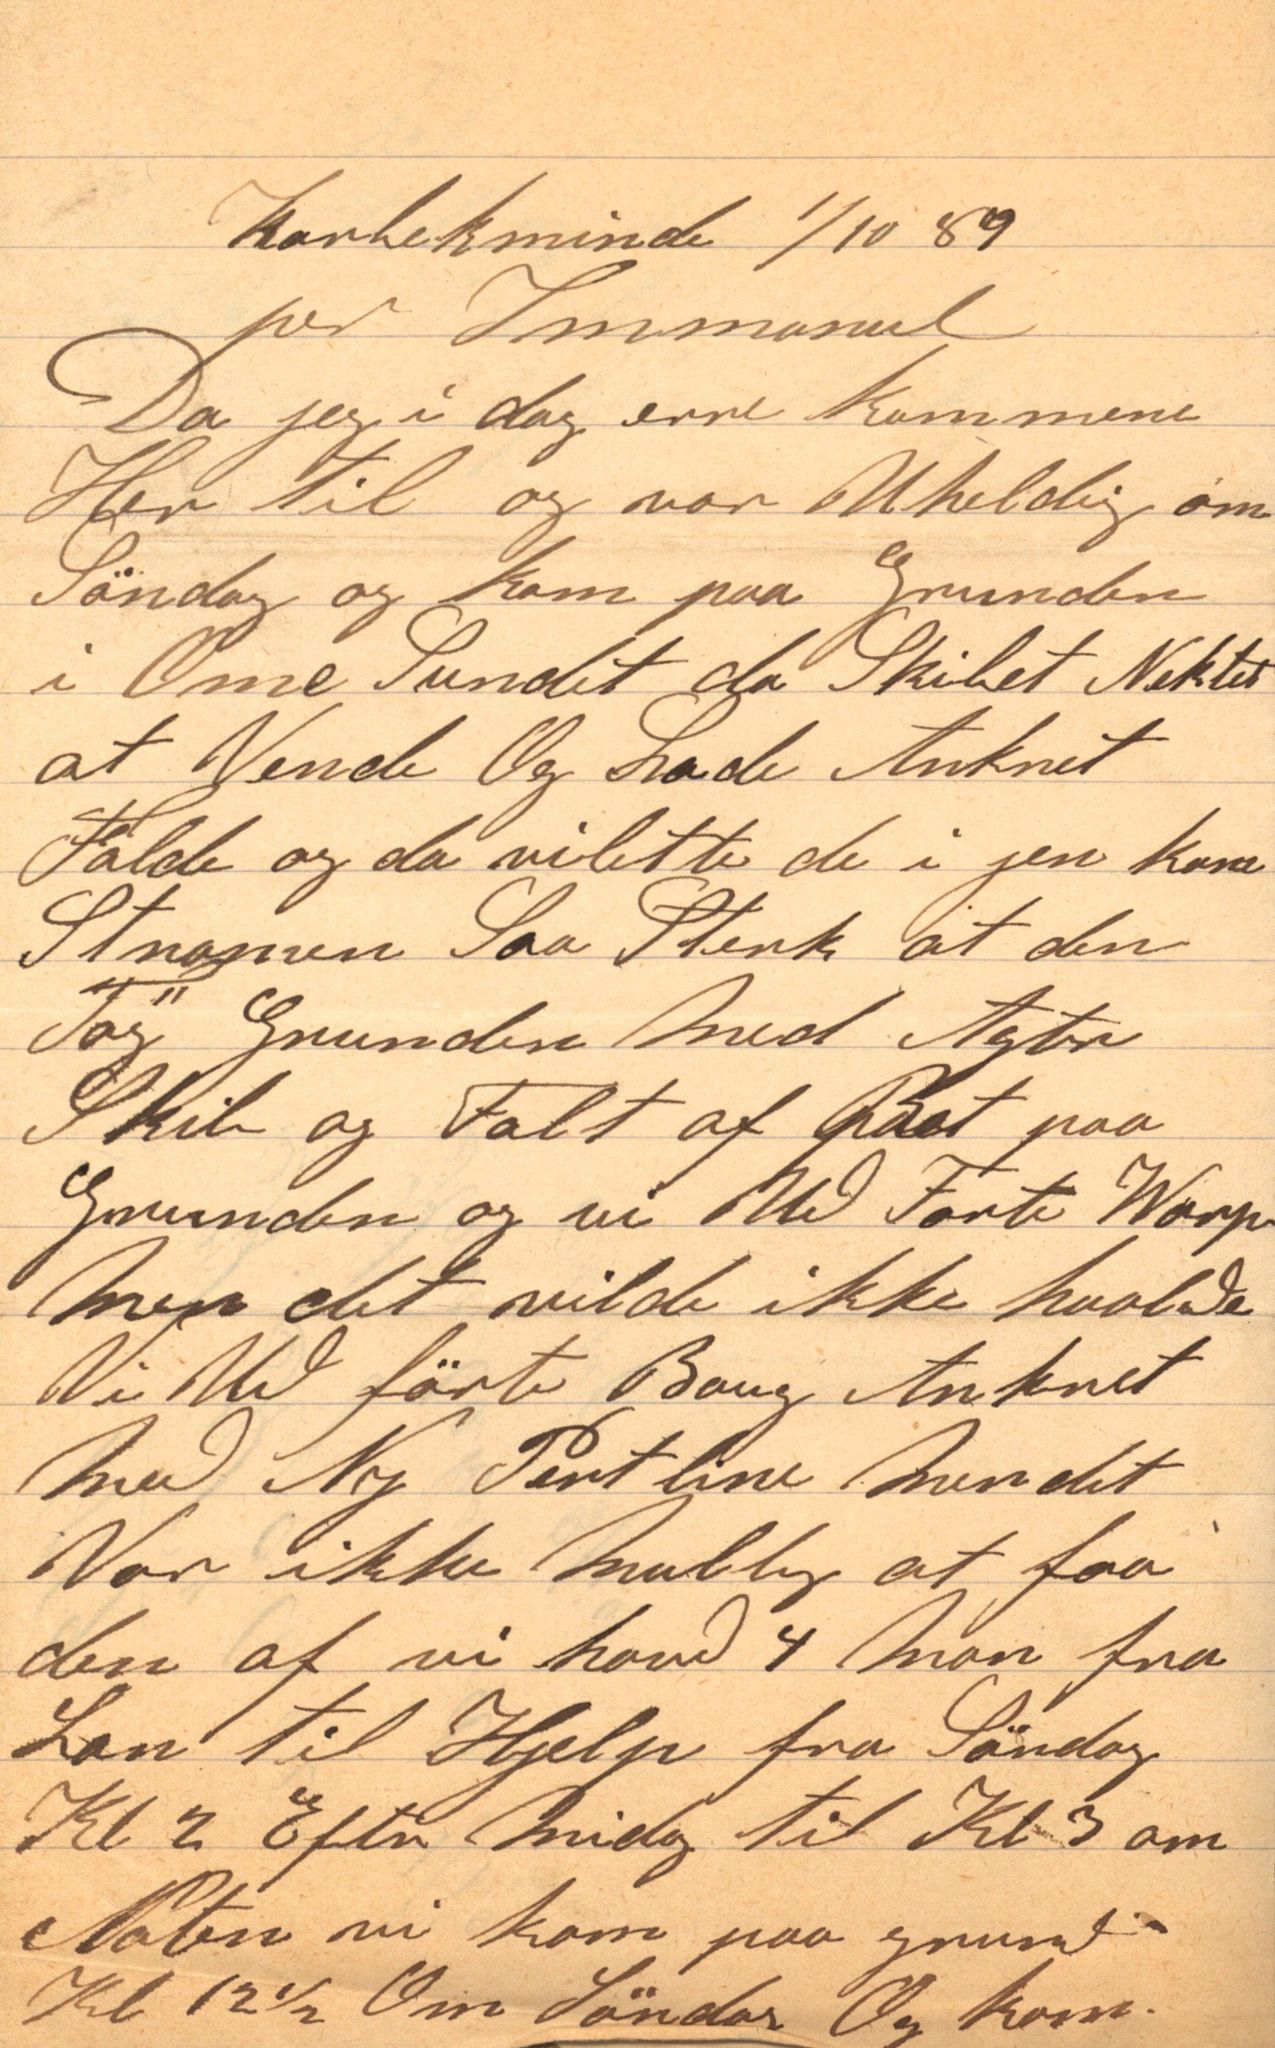 Karbekminde 1/10 89
per Immanuel
Da jeg i dag erre kommene
Her til og var Uheldig om
Söndag og kom paa Grunden
i Ome Sundet da Skibet Nektet
at Vende Og Lade Ankret
Falde og da vi lette de i jen kom
Stromen Saa Sterk at den
Tog Grunden Med Agter
Skib og Falt af Baet paa
Grunden og vi Ud Forte Warp
Men det vilde ikke haalde
Vi Ud förte Boug Ankret
Med Ny Pertline Men det
Var ikke Mullig at faa
den af vi havd 4 Man fra
Lan til Hjelp fra Söndag
Kl 2 Efter Midag til Kl 3 om
Naten vi kom paa grund
Kl 12 1/2 Om Söndag Og kom